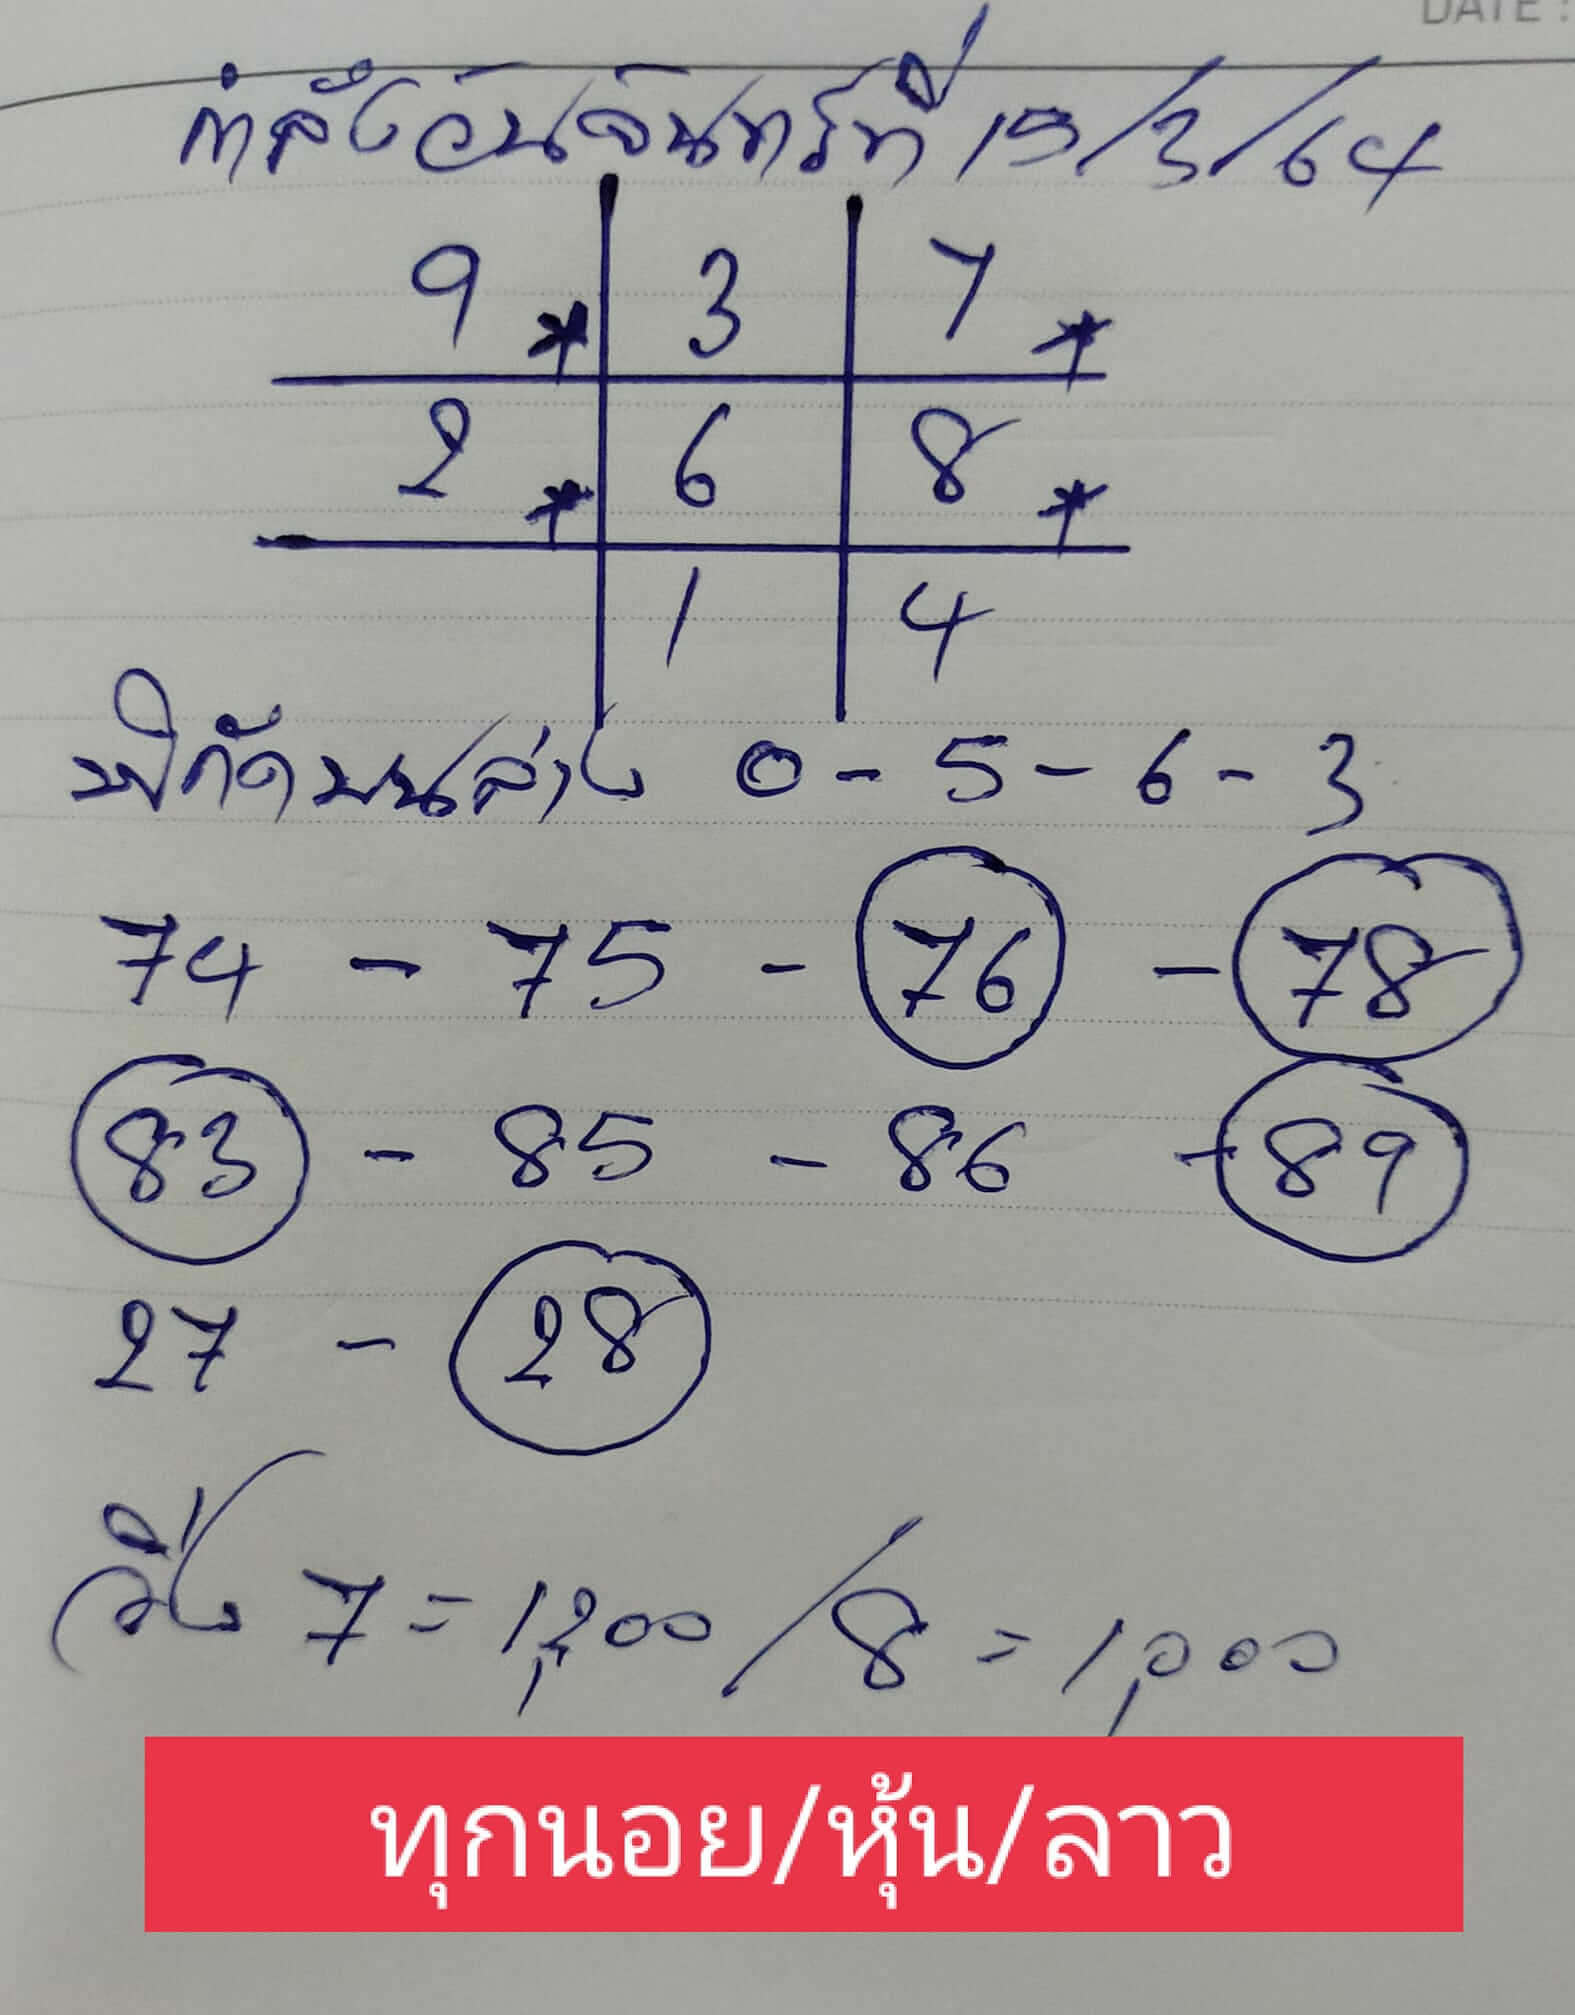 DATE :
กำลังวันจันทร์ที่ 15/3/64
9 * 3 7 *
2 * 6 8 *
1 4
พิกัดบนล่าง 0 - 5 - 6 - 3
74 - 75 - 76 - 78
83 - 85 - 86 - 89
27 - 28
วิ่ง 7 = 1,200 / 8 = 1,000
ทุกนอย/หุ้น/ลาว